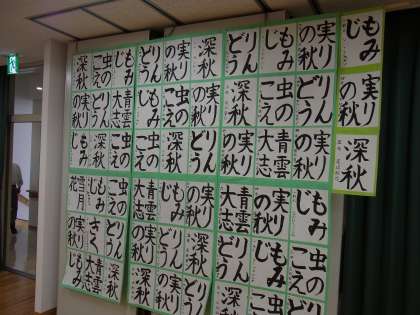 深秋
虫のこえ
もみじ
りんどう
実りの秋
深秋
りんどう
もみじ
実りの秋
もみじ
実りの秋
青雲大志
虫のこえ
もみじ
虫のこえ
実りの秋
深秋
虫のこえ
りんどう
実りの秋
もみじ
深秋
虫のこえ
もみじ
深秋
りんどう
実りの秋
青雲大志
虫のこえ
深秋
雪月花
もみじ
虫のこえ
青雲大志
実りの秋
青雲大志
実りの秋
もみじ
実りの秋
きく
りんどう
もみじ
りんどう
深秋
りんどう
もみじ
虫のこえ
青雲大志
深秋
深秋
実りの秋
深秋
りんどう
虫のこえ
実りの秋